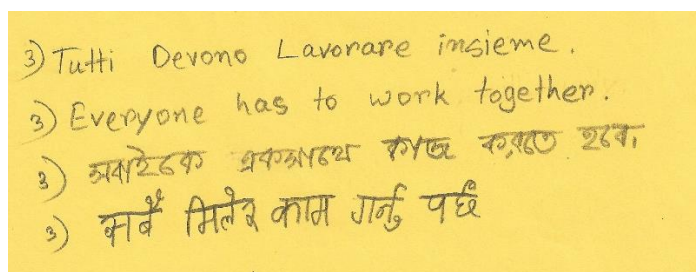 3) Tutti Devono Lavorare insieme.
3) Everyone has to work together.
3) সবাইকে একসাথে কাজ করতে হবে।
3) सबैँ मिलेर काम गर्नु पर्छ